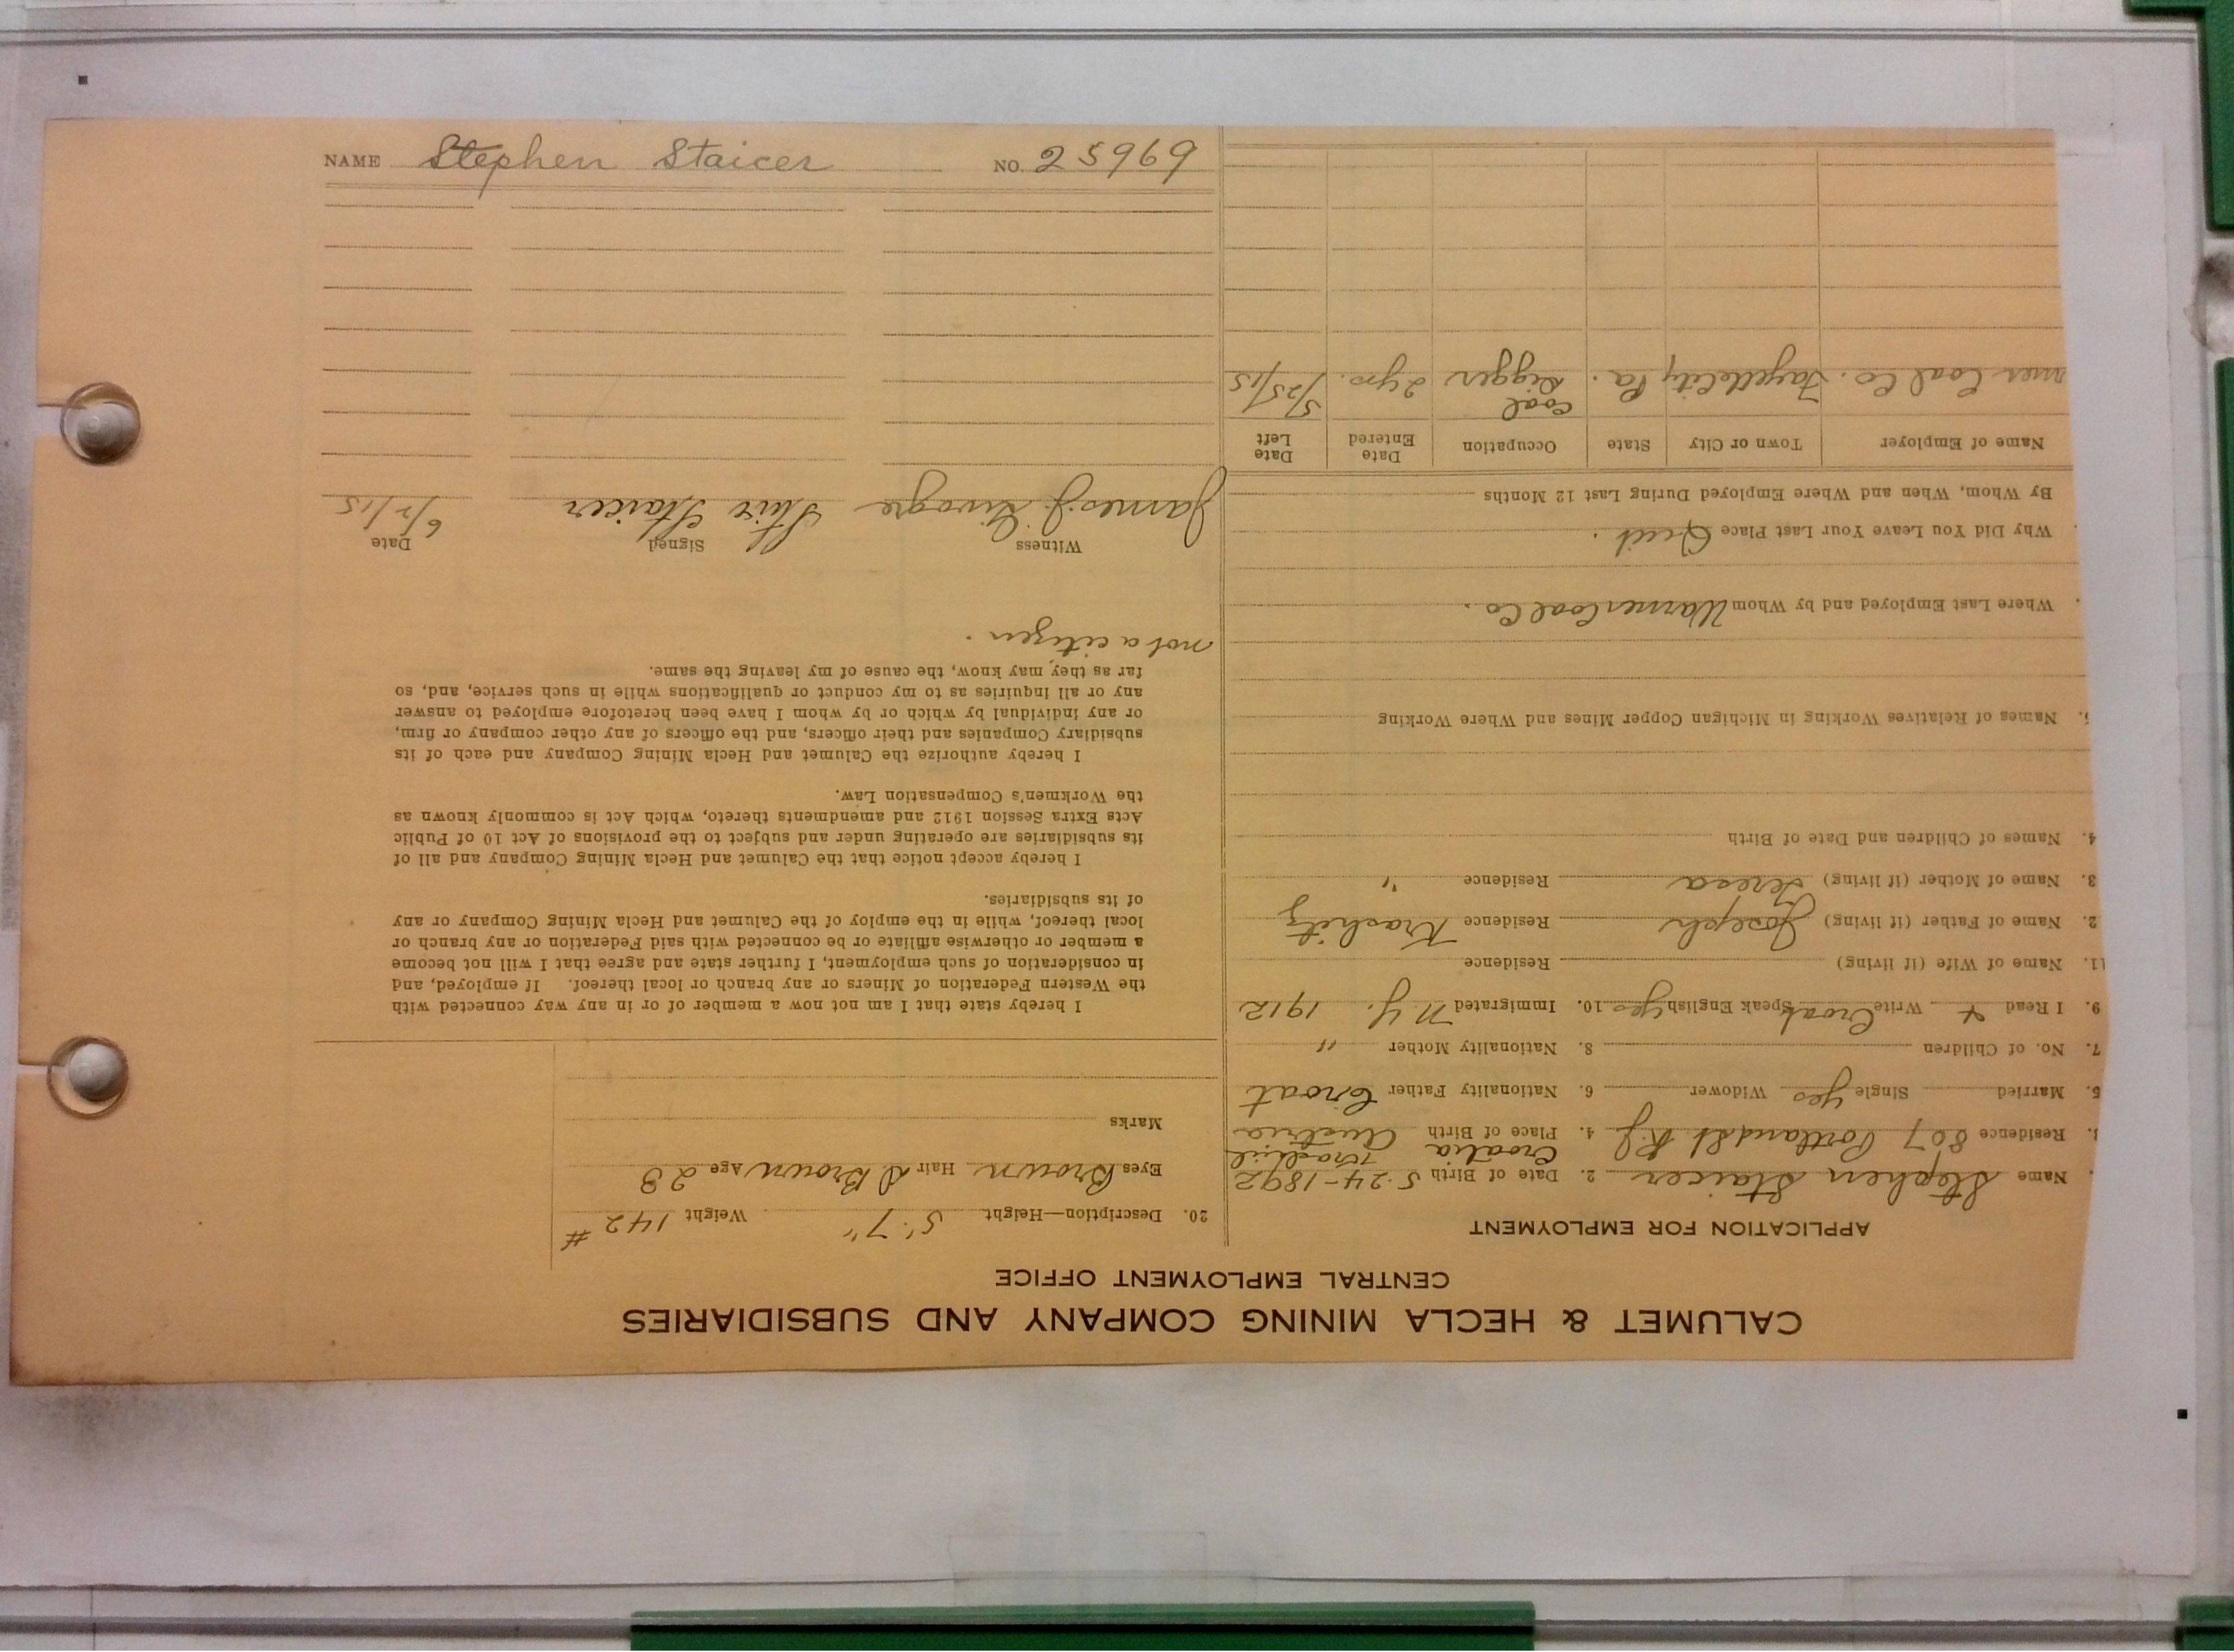 NAME Stephen Staicer NO. 25969
CALUMET & HECLA MINING COMPANY AND SUBSIDIARIES
CENTRAL EMPLOYMENT OFFICE
APPLICATION FOR EMPLOYMENT
. Name Stephen Staicer 2. Date of Birth 5-24-1892
3. Residence 807 Portland St 4. Place of Birth Croatia Austria
5. Married Single yes Widower 6. Nationality Father Croat
7. No. of Children 8. Nationality Mother "
9. I Read + Write Croat Speak English yes 10. Immigrated N Y. 1912
11. Name of Wife (if living) Residence
2. Name of Father (if living) Joseph Residence
3. Name of Mother (if living) Teresa Residence "
4. Names of Children and Date of Birth
5. Names of Relatives Working in Michigan Copper Mines and Where Working
. Where Last Employed and by Whom Warner Coal Co.
. Why Did You Leave Your Last Place Quit.
By Whom, When and Where Employed During Last 12 Months
Name of Employer Town or City State Occupation Date Entered Date Left
rner Coal Co. Fayette City Pa. Coal Digger 2 yrs. 5/25/15
20. Description—Height 5' 7" Weight 142 #
Eyes Brown Hair D Brown Age 23
Marks
I hereby state that I am not now a member of or in any way connected with
the Western Federation of Miners or any branch or local thereof. If employed, and
in consideration of such employment, I further state and agree that I will not become
a member or otherwise affiliate or be connected with said Federation or any branch or
local thereof, while in the employ of the Calumet and Hecla Mining Company or any
of its subsidiaries.
I hereby accept notice that the Calumet and Hecla Mining Company and all of
its subsidiaries are operating under and subject to the provisions of Act 10 of Public
Acts Extra Session 1912 and amendments thereto, which Act is commonly known as
the Workmen's Compensation Law.
I hereby authorize the Calumet and Hecla Mining Company and each of its
subsidiary Companies and their officers, and the officers of any other company or firm,
or any individual by which or by whom I have been heretofore employed to answer
any or all inquiries as to my conduct or qualifications while in such service, and, so
far as they may know, the cause of my leaving the same.
not a citizen.
Witness Signed Date
James J. Stive Staicer 6/2/15